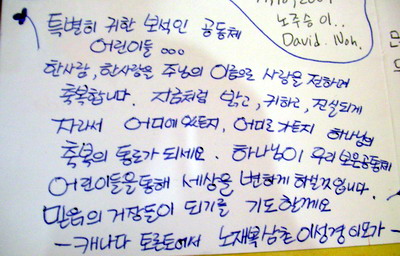 노주승이..
David. Noh.
특별히 귀한 보석인 공동체
어린이들...
한사람, 한사람을 주님의 이름으로 사랑을 전하며
축복합니다. 지금처럼 밝고, 귀하고, 진실되게
자라서 어디에 있든지, 어디로 가든지 하나님의
축복의 통로가 되세요. 하나님이 우리 보은공동체
어린이들을 통해 세상을 변하게 하실것입니다.
믿음의 거장들이 되기를 기도할게요
- 캐나다 토론토에서 노재복삼촌 이성경이모가 -